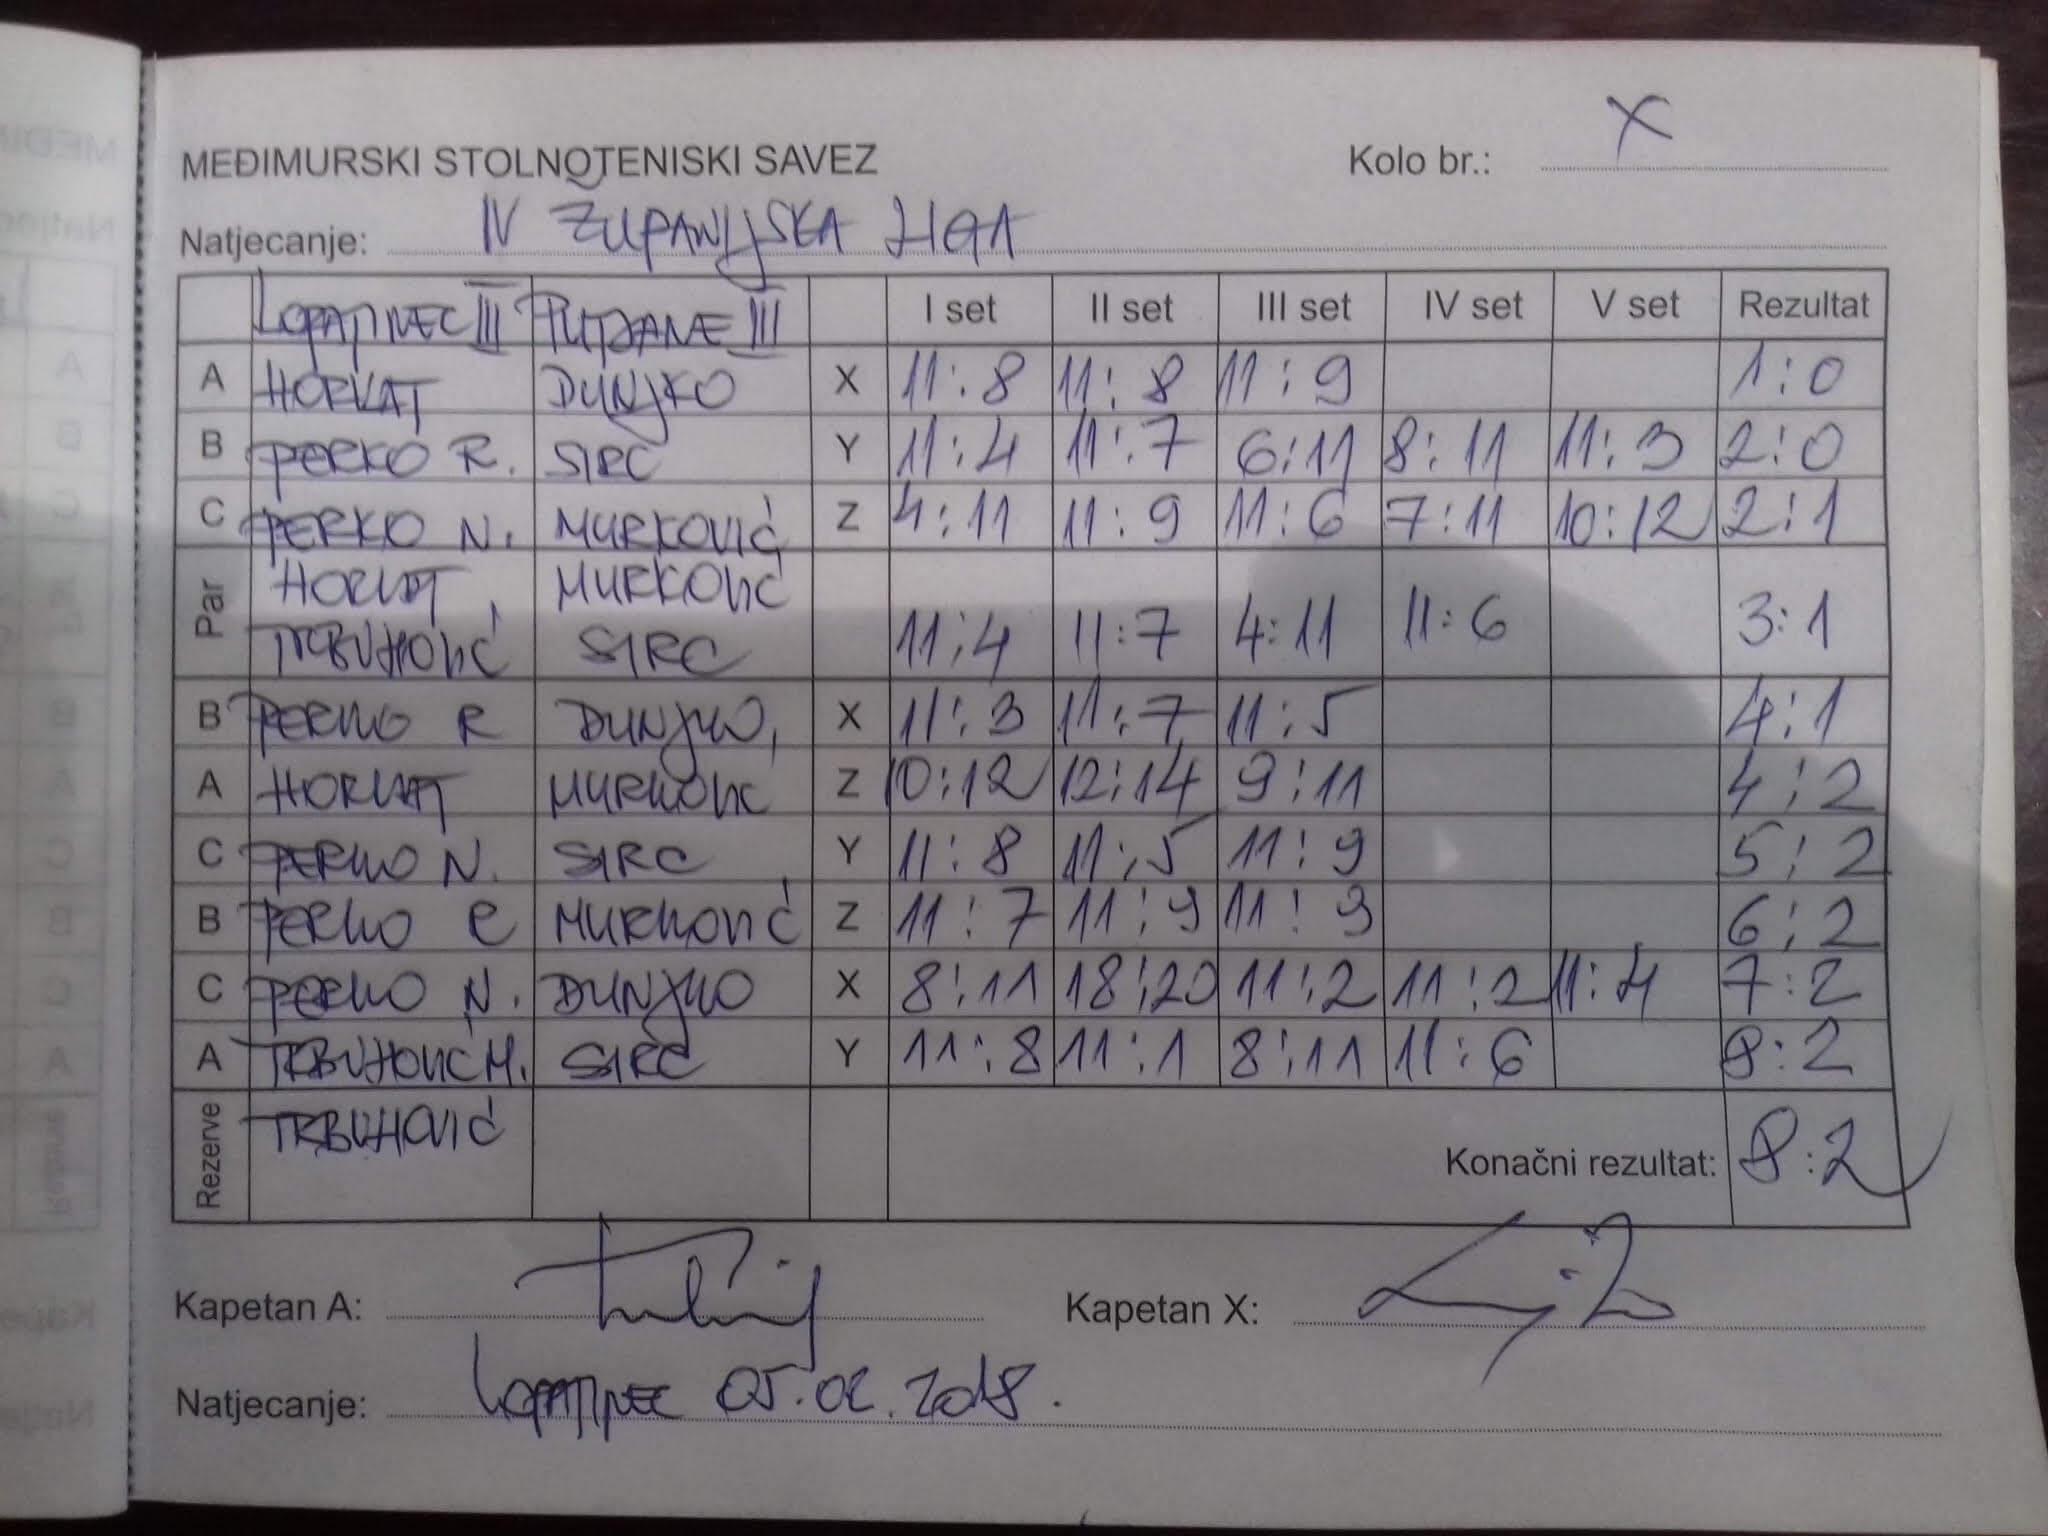 MEĐIMURSKI STOLNOTENISKI SAVEZ Kolo br.: X
Natjecanje: IV ŽUPANIJSKA LIGA
LOPATINEC III PUTJANE III I set II set III set IV set V set Rezultat
A HORVAT DUNJKO X 11:8 11:8 11:9 1:0
B PERKO R. SIRC Y 11:4 11:7 6:11 8:11 11:3 2:0
C PERKO N. MURKOVIĆ Z 4:11 11:9 11:6 7:11 10:12 2:1
Par HORVAT, MURKOVIĆ
TRBUHOVIĆ SIRC 11:4 11:7 4:11 11:6 3:1
B PERKO R DUNJKO, X 11:3 11:7 11:5 4:1
A HORVAT MURKOVIC Z 10:12 12:14 9:11 4:2
C PERKO N. SIRC Y 11:8 11:5 11:9 5:2
B PERKO R MURKOVIĆ Z 11:7 11:9 11:9 6:2
C PERKO N. DUNJKO X 8:11 18:20 11:2 11:2 11:4 7:2
A TRBUHOVIĆ M. SIRC Y 11:8 11:1 8:11 11:6 8:2
Rezerve TRBUHOVIĆ Konačni rezultat: 8:2
Kapetan A: Kapetan X:
Natjecanje: LOPATINEC 05.02.2018.